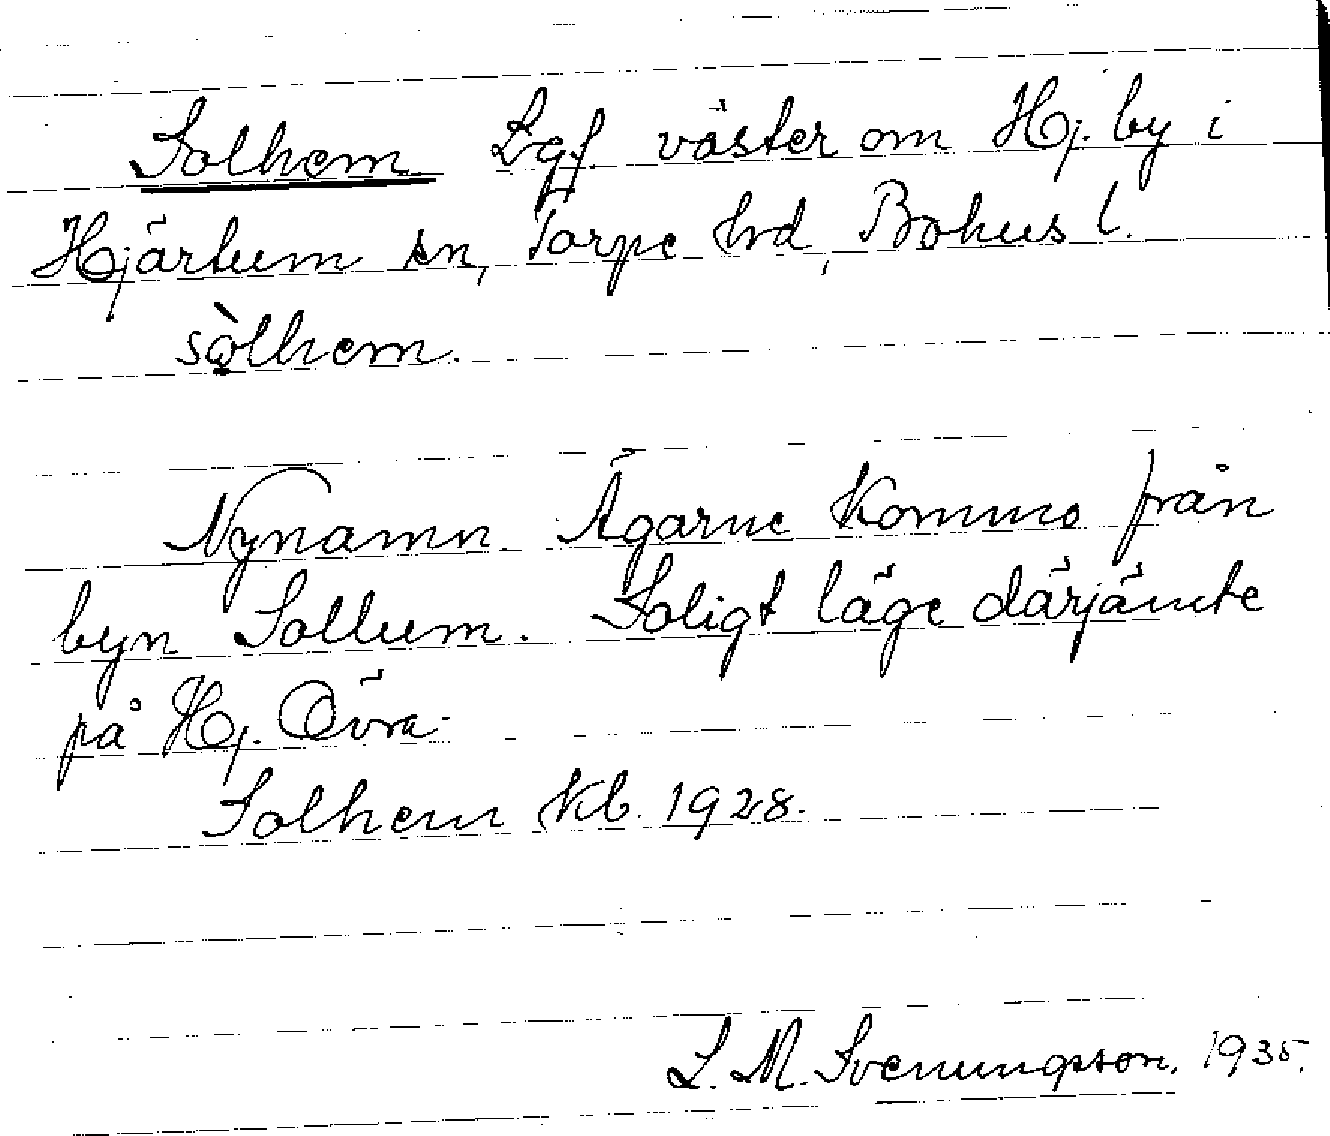 Solhem Lgf. väster om Hj. by i
Hjärtum sn, Torpe hd, Bohus l.
sòlhem.
Nynamn. Ägarne kommo från
byn Sollum. Soligt läge därjämte
på Hj. Övra.
Solhem kb. 1928.
L. M. Svenungsson. 1935.